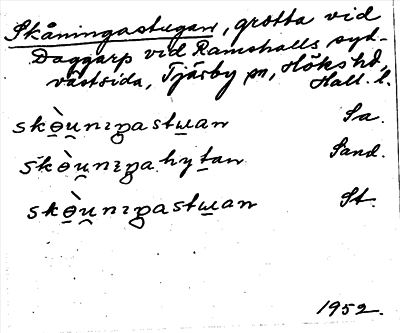 Skåningastugan, grotta vid
Daggarp vid Ramshalls syd-
västsida, Tjärby sn, Höks hd,
Hall. l.
skɵ̀u̯nɪŋastɯan Sa.
skɵ̀u̯nɪŋa hytan Sand.
skɵ̀u̯nɪŋastɯan St.
1952.